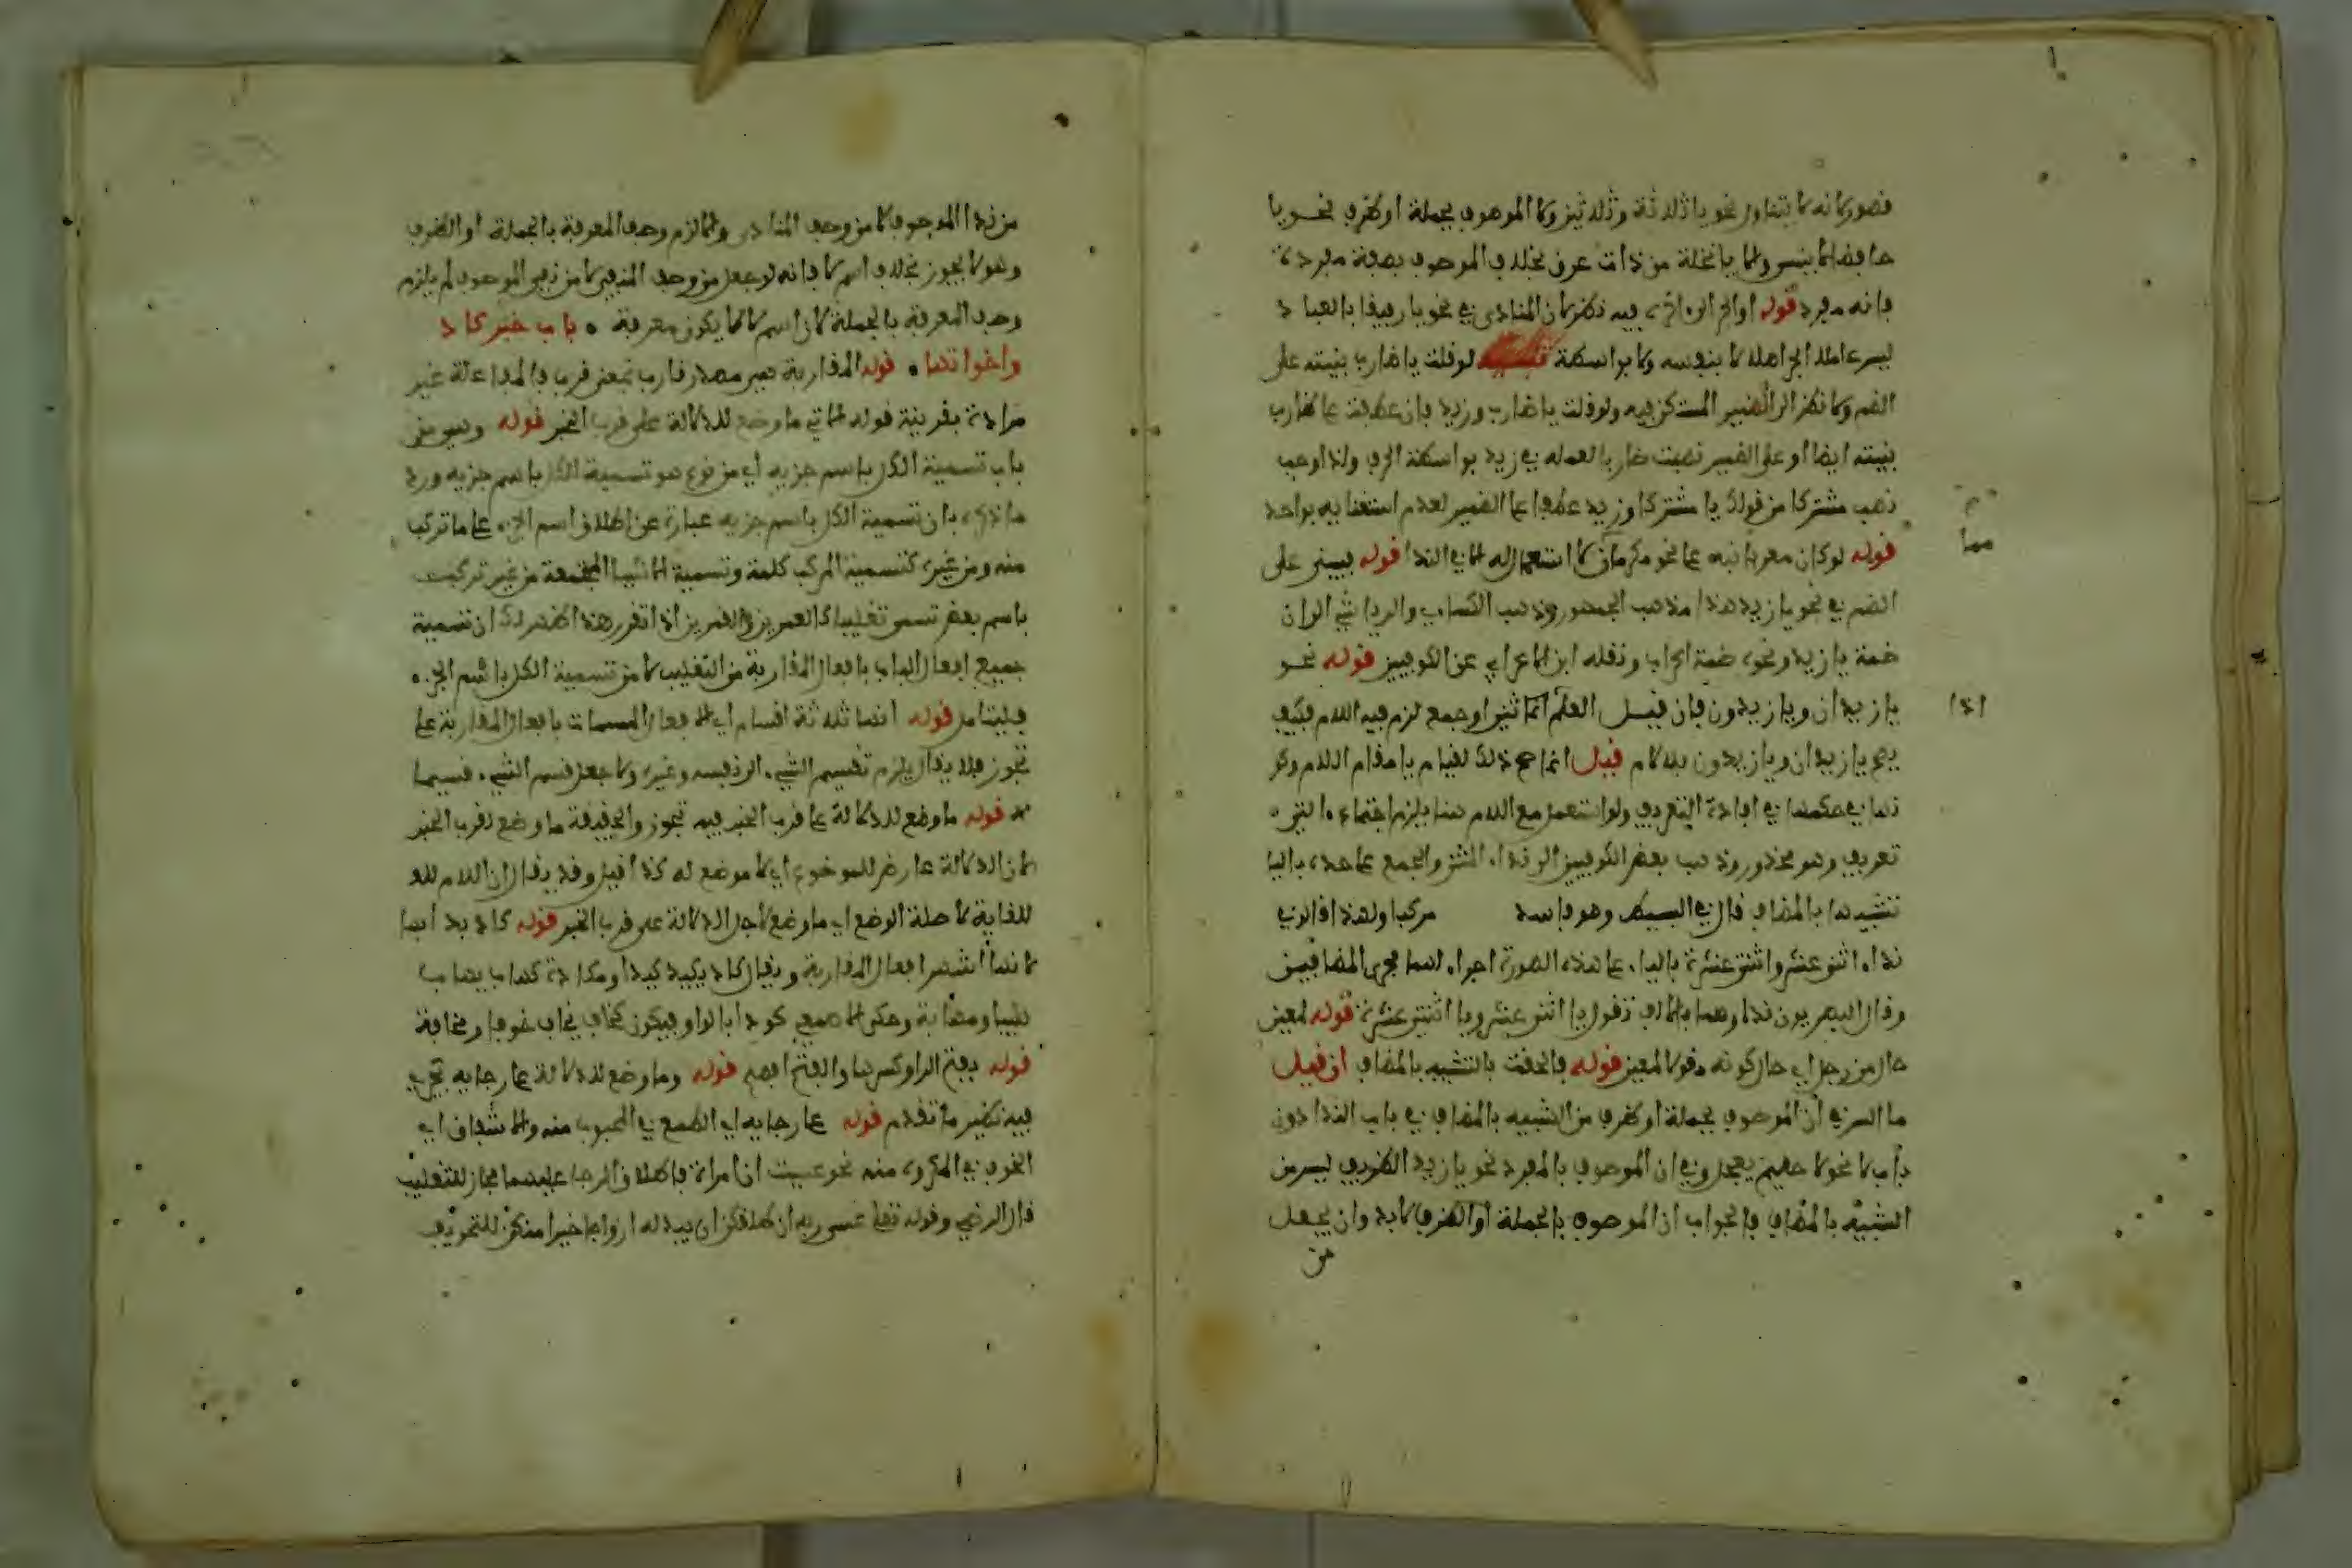 قصور لانه لا يتناول نحو يا ثلاثة وثلاثين ولا الموصوف بجملة او ظرف نحو يا
حافظا لا ينسى والا يا نخلة من ذات عرق بخلاف الموصوف بصفة مفردة
فانه مفرد قوله او الجر الى اخره فيه نظر لان المنادى في نحو يا رفيقا بالعباد
ليس عاملا الجر اصلا لا بنفسه ولا بواسطة تنبيه لو قلت يا ضارب بنيته على
الضم ولا نظر الى الضمير المستكن فيه ولو قلت يا ضارب وزيد فان عطفت على ضارب
بنيته ايضا او على الضمير نصبت ضاربا لعمله في زيد بواسطة الحرف ولذا وجب
نصب مشتركا من قولك يا مشتركا وزيد عطفا على الضمير لعدم استغنايه بواحد
قوله لو كان معربا نبه على نحو مكرمان لا استعمال له الا في الندا قوله فيبنى على
الضم في نحو يا زيد هذا مذهب الجمهور وذهب الكساي والرياشي الى ان
ضمة يا زيد ونحوه ضمة اعراب ونقله ابن الاعرابي عن الكوفيين قوله نحو
يا زيدان ويا زيدون فان قيل العلم اذا ثني او جمع لزم فيه اللام فكيف
يصح يا زيدان ويا زيدون بلا لام قيل انما صح ذلك لقيام يا مقام اللام وكو
نها في حكمها في افادة التعريف ولو استعمل مع اللام هنا يلزم اجتماع التي
تعريف وهو محذور وذهب بعض الكوفيين الى نداء المثنى والجمع على حده باليا
تشبيها بالمضاف قال في البسيط وهو فاسد مركبا ولهذا قالو في
نداء اثني عشر واثنتي عشرة باليا على هذه الصورة اجراء لهما مجرى المضافين
وقال البصريون نداوهما بالالف تقول يا اثنى عشر ويا اثنتى عشرة قوله لمعين
حال من رجل اي حال كونه مقولا لمعين قوله فالحقت بالتشبيه بالمضاف ان قيل
ما السر في ان الموصوف بجملة او ظرف من الشبيه بالمضاف في باب الندا دون
باب لا نحو لا حليم يعجل وفي ان الموصوف بالمفرد نحو يا زيد الظريف ليس من
الشبيه بالمضاف فالجواب ان الموصوف بالجملة او الظرف لا بد وان يجعل
من
مما
اذا
من نداء الموصوف لا من وصف المنادى والا لزم وصف المعرفة بالجملة او الظرف
وهو لا يجوز بخلاف اسم لا فانه لو جعل من وصف المنفي لا من نفي الموصوف لم يلزم
وصف المعرفة بالجملة لان اسم لا لا يكون معرفة • باب خبر كاد
واخواتها • قوله المقاربة هي مصدر قارب بمعنى قرب فالمفاعلة غير
مرادة بقرينة قوله الاتي ما وضع للدلالة على قرب الخبر قوله وهو من
باب تسمية الكل باسم جزيه اي من نوع هو تسمية الكل باسم جزيه ورد
ما ذكره بان تسمية الكل باسم جزيه عبارة عن اطلاق اسم الجزء على ما تركب
منه ومن غيره كتسمية المركب كلمة وتسمية الاشيا المجتمعة من غير تركيب
باسم بعض تسمى تغليبا كالعمرين والقمرين اذا تقرر هذا ظهر لك ان تسمية
جميع افعال الباب بافعال المقاربة من التغليب لا من تسمية الكل باسم الجزء
فليتامل قوله انها ثلاثة اقسام اي الافعال المسمات بافعال المقاربة على
تجوز فلا يقال يلزم تقسيم الشيء الى نفسه وغيره ولا جعل قسم الشيء قسيما
قوله ما وضع للدلالة على قرب الخبر فيه تجوز والحقيقة ما وضع لقرب الخبر
لان الدلالة عارض للموضوع اي لا موضع له كذا قيل وقد يقال ان اللام للد
للغاية لا صلة الوضع اي ما وضع لاجل الدلالة على قرب الخبر قوله كاد بدا بها
لانها اشهر افعال المقاربة ويقال كاد يكيد كيدا ومكادة كهاب يهاب
هيبا ومهابة وحكى الاصمعي كودا بالواو فيكون كخاف يخاف خوفا ومخافة
قوله بفتح الرا وكسرها والفتح افصح قوله وما وضع للدلالة على رجايه يجري
فيه نظير ما تقدم قوله على رجايه اي الطمع في المحبوب منه والاشفاق اي
الخوف في المكروه منه نحو عسيت ان امرات فاطلاق الرجا عليهما مجاز للتغليب
قال الرضي وقوله تعالى عسى ربه ان طلقكن ان يبدله ازواجا خيرا منكن للتخويف